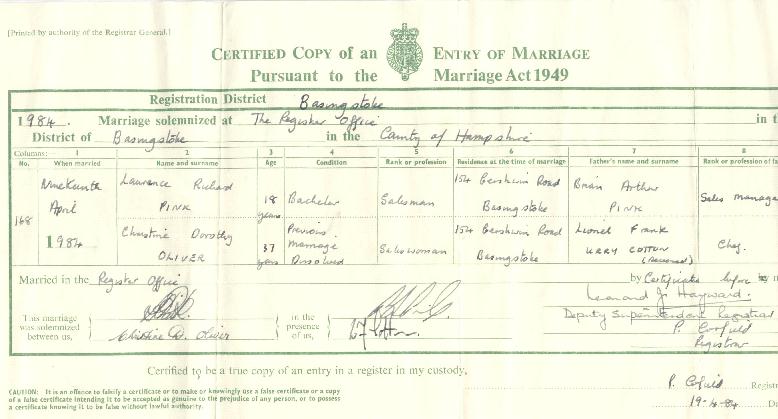 [Printed by authority of the Registrar General.]
CERTIFIED COPY of an ENTRY OF MARRIAGE
Pursuant to the Marriage Act 1949
Registration District Basingstoke
1984. Marriage solemnized at The Register Office in t
District of Basingstoke in the County of Hampshire
Columns: 1 2 3 4 5 6 7 8
No. When married Name and surname Age Condition Rank or profession Residence at the time of marriage Father's name and surname Rank or profession of fa
168 Nineteenth April 1984
Laurence Richard PINK 18 years Bachelor Salesman 154 Gershwin Road Basingstoke Brian Arthur PINK Sales manage
Christine Dorothy OLIVER 37 years Previous marriage Dissolved Saleswoman 154 Gershwin Road Basingstoke Lionel Frank COTTON (deceased) Chef.
Married in the Register Office by Certificate before by m
This marriage was solemnized between us,
Christine D. Oliver
in the presence of us,
Leonard J. Hayward.
Deputy Superintendent Registrar
P. Corfield
Registrar
Certified to be a true copy of an entry in a register in my custody,
CAUTION: It is an offence to falsify a certificate or to make or knowingly use a false certificate or a copy
of a false certificate intending it to be accepted as genuine to the prejudice of any person, or to possess
a certificate knowing it to be false without lawful authority.
P. Corfield Registr
19-4-84 Da